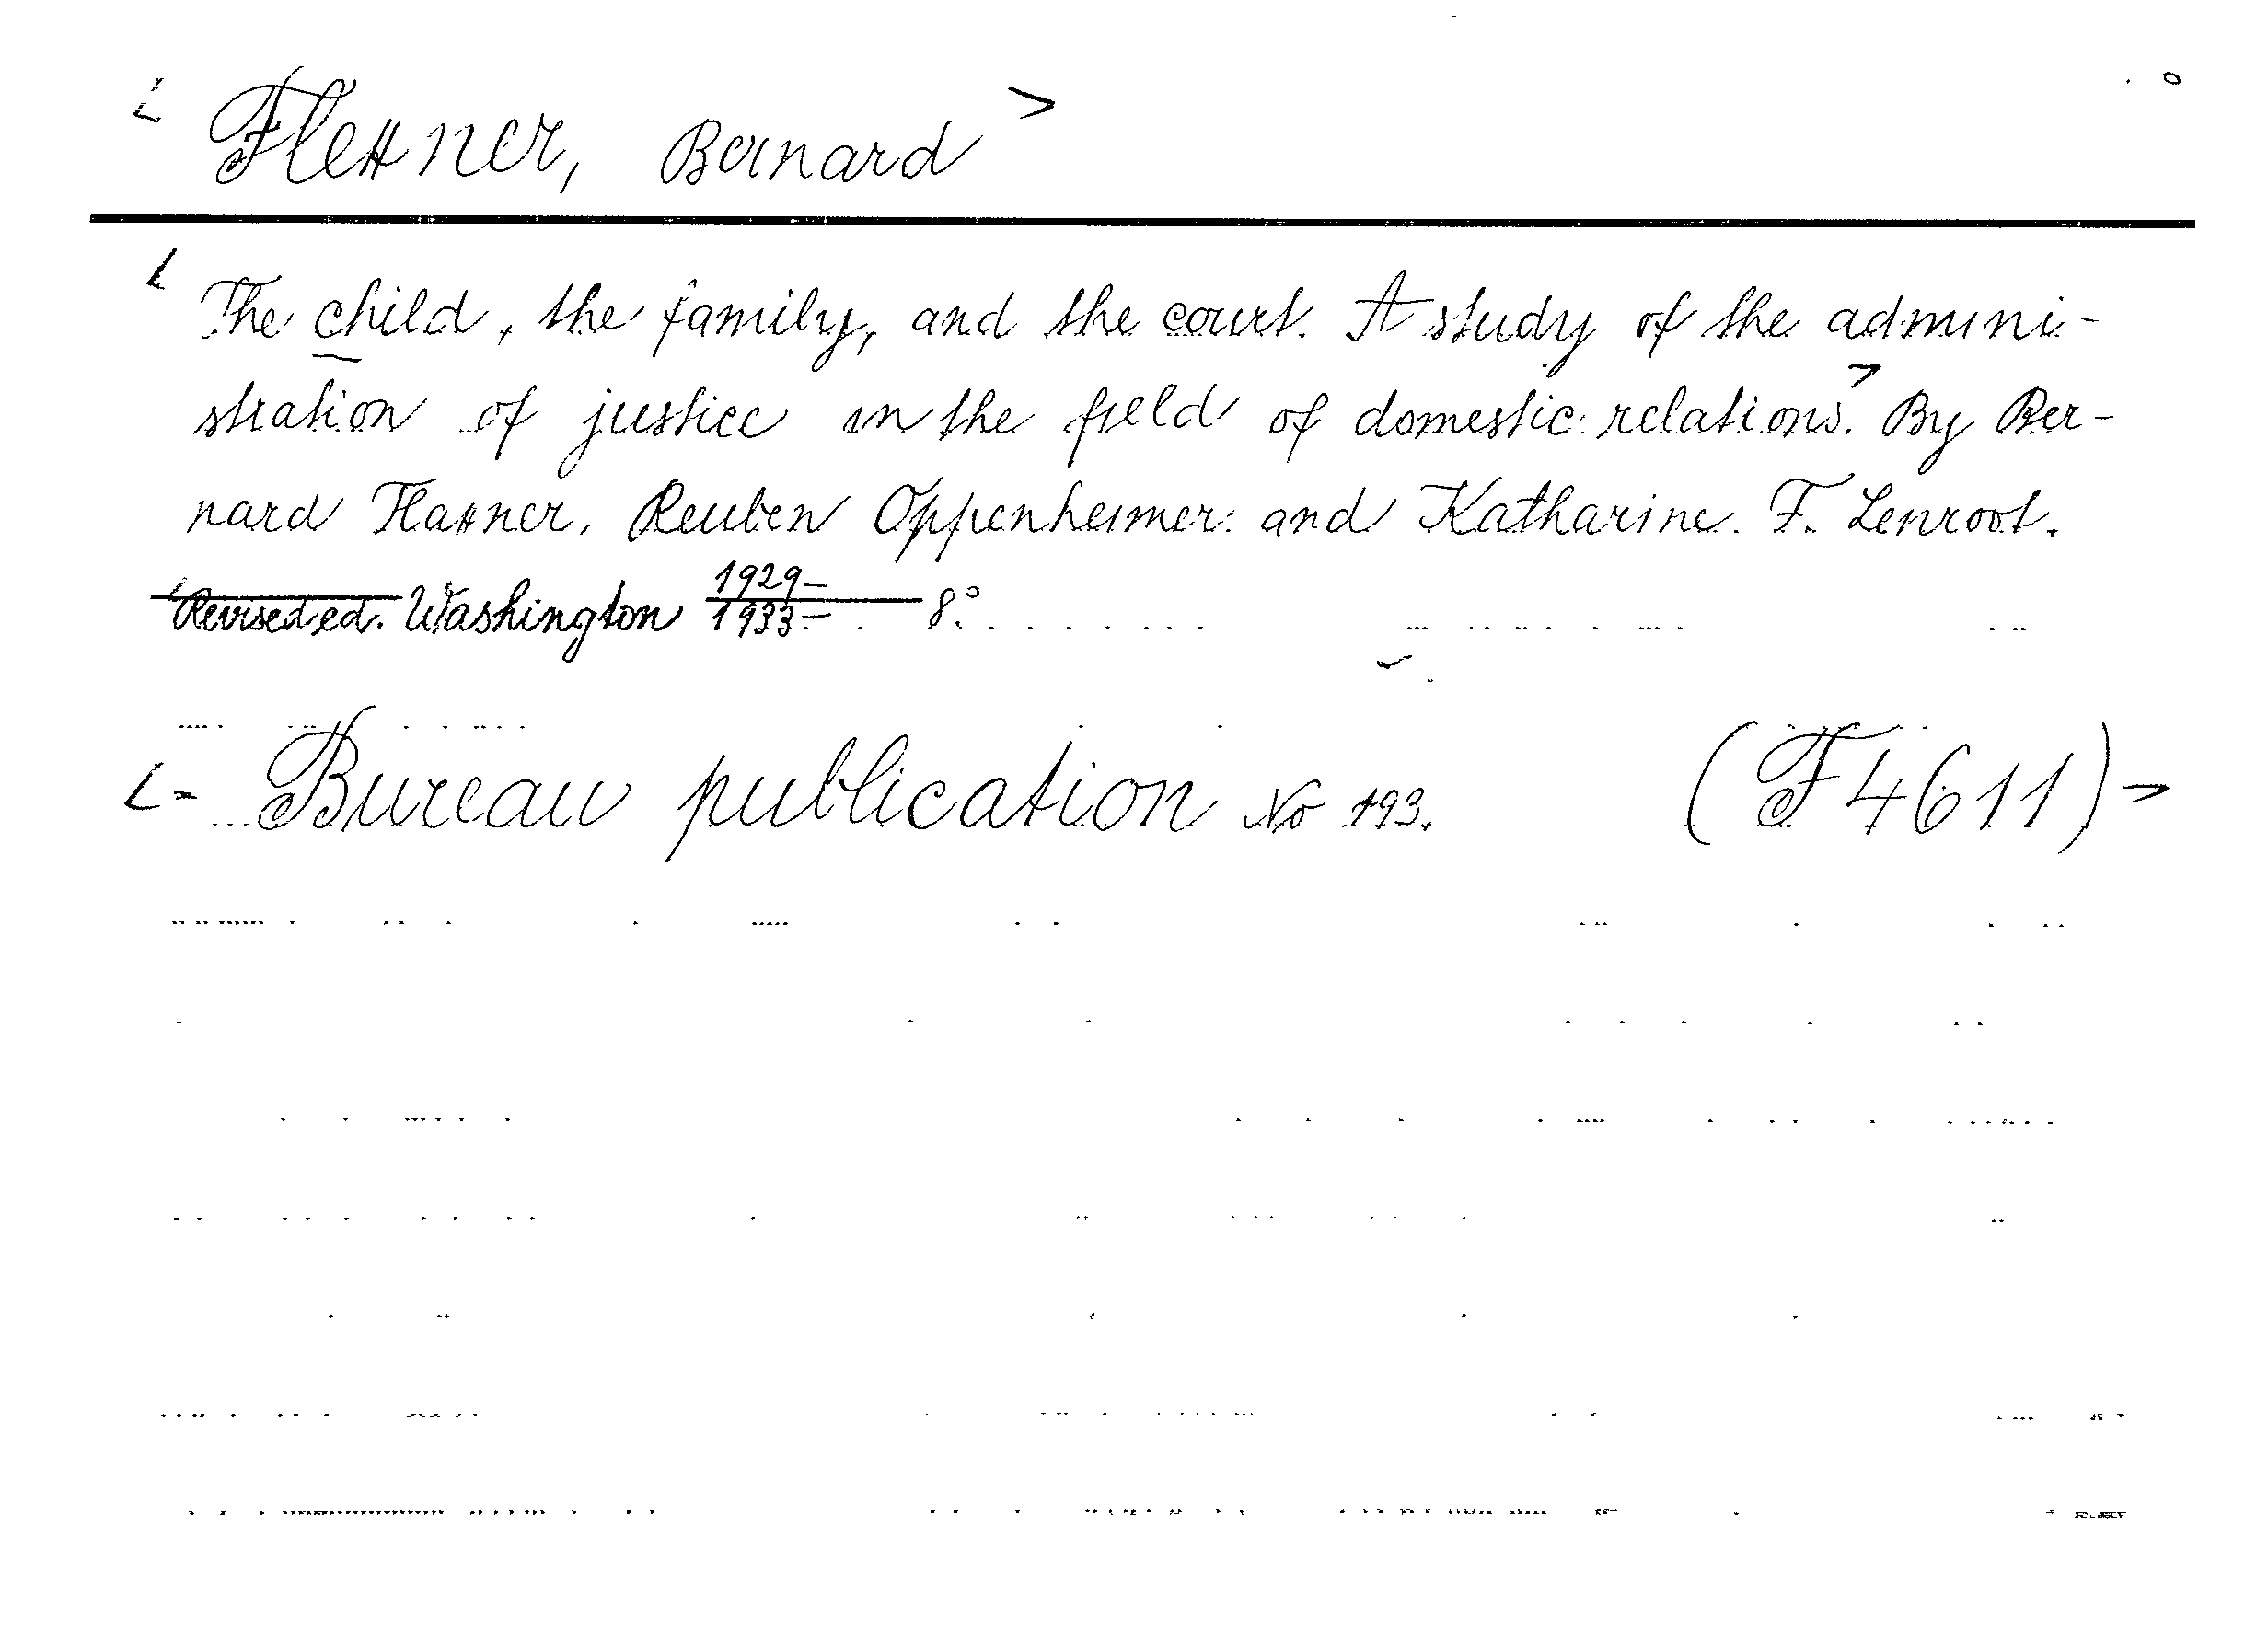 < Flexner, Bernard >
< The child, the family, and the court. A study of the admini-
stration of justice in the field of domestic relations.> By Ber-
nard Flexner, Reuben Oppenheimer and Katharine F. Lenroot.
Revised ed. Washington 1929-
1933.- 8°.
<- Bureau publication No 193. (F4611) ->